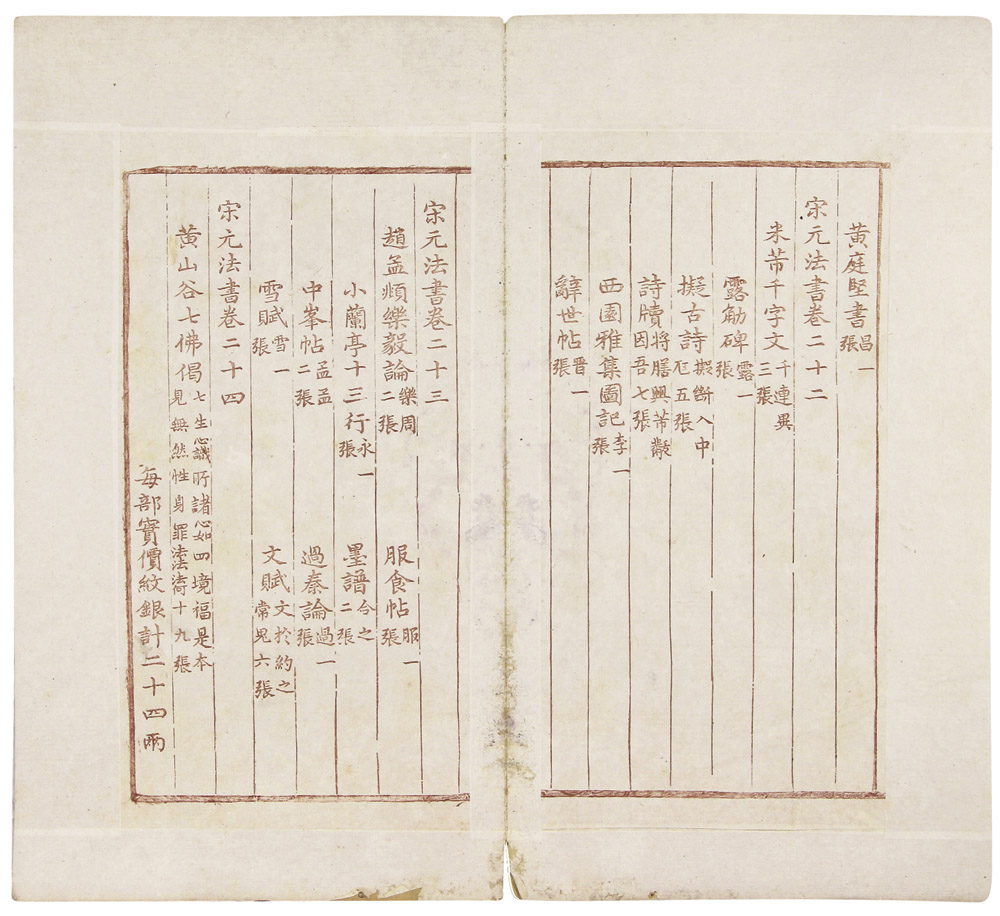 黃庭堅書昌一張
宋元法書卷二十二
米芾千字文千連異三張
露勍碑露一張
擬古詩擬斷入中
詩牘將膳興芾因吾七張
西園雅集圖記李一張
辭世帖晉一張
宋元法書卷二十三
趙孟頫樂毅論樂周二張 服食帖服一張
小蘭亭十三行永一張 墨譜今之二張
中峯帖孟孟二張 過秦論過一張
雪賦雪一張 文賦文於約之常見六張
宋元法書卷二十四
黃山谷七佛偈七生心識所諸心如四境福是本見無然性身罪法法十九張
每部實價紋銀計二十四兩